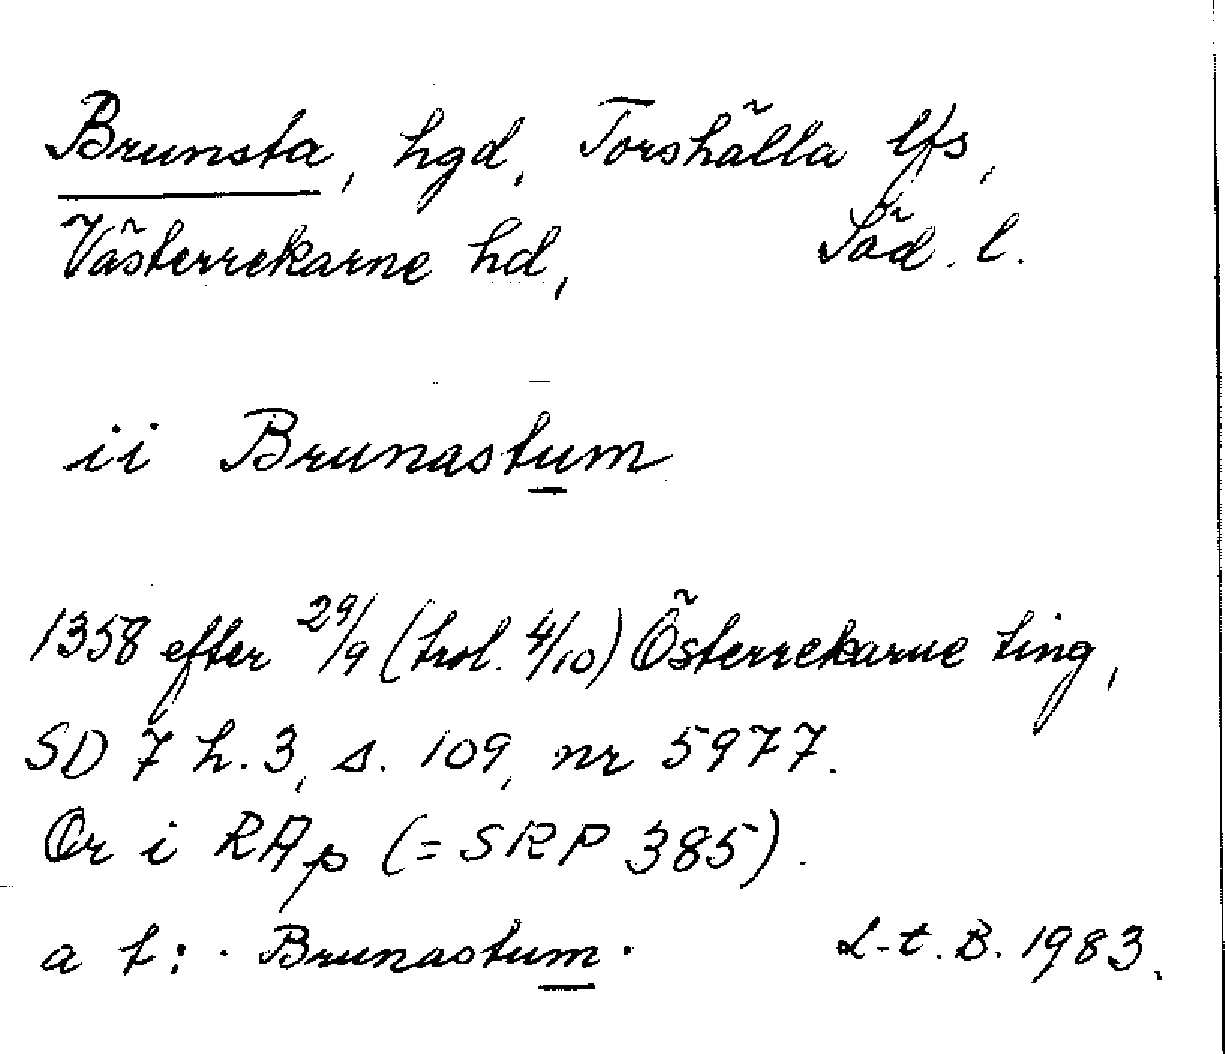 Brunsta, hgd, Torshälla lfs,
Västerrekarne hd, Söd. l.
ii Brunastum
1358 efter 29/9 (trol. 4/10) Österrekarne ting,
SD 7 h. 3, s. 109, nr 5977.
Or i RAp (= SRP 385).
a t: · Brunastum · L-t. B. 1983.